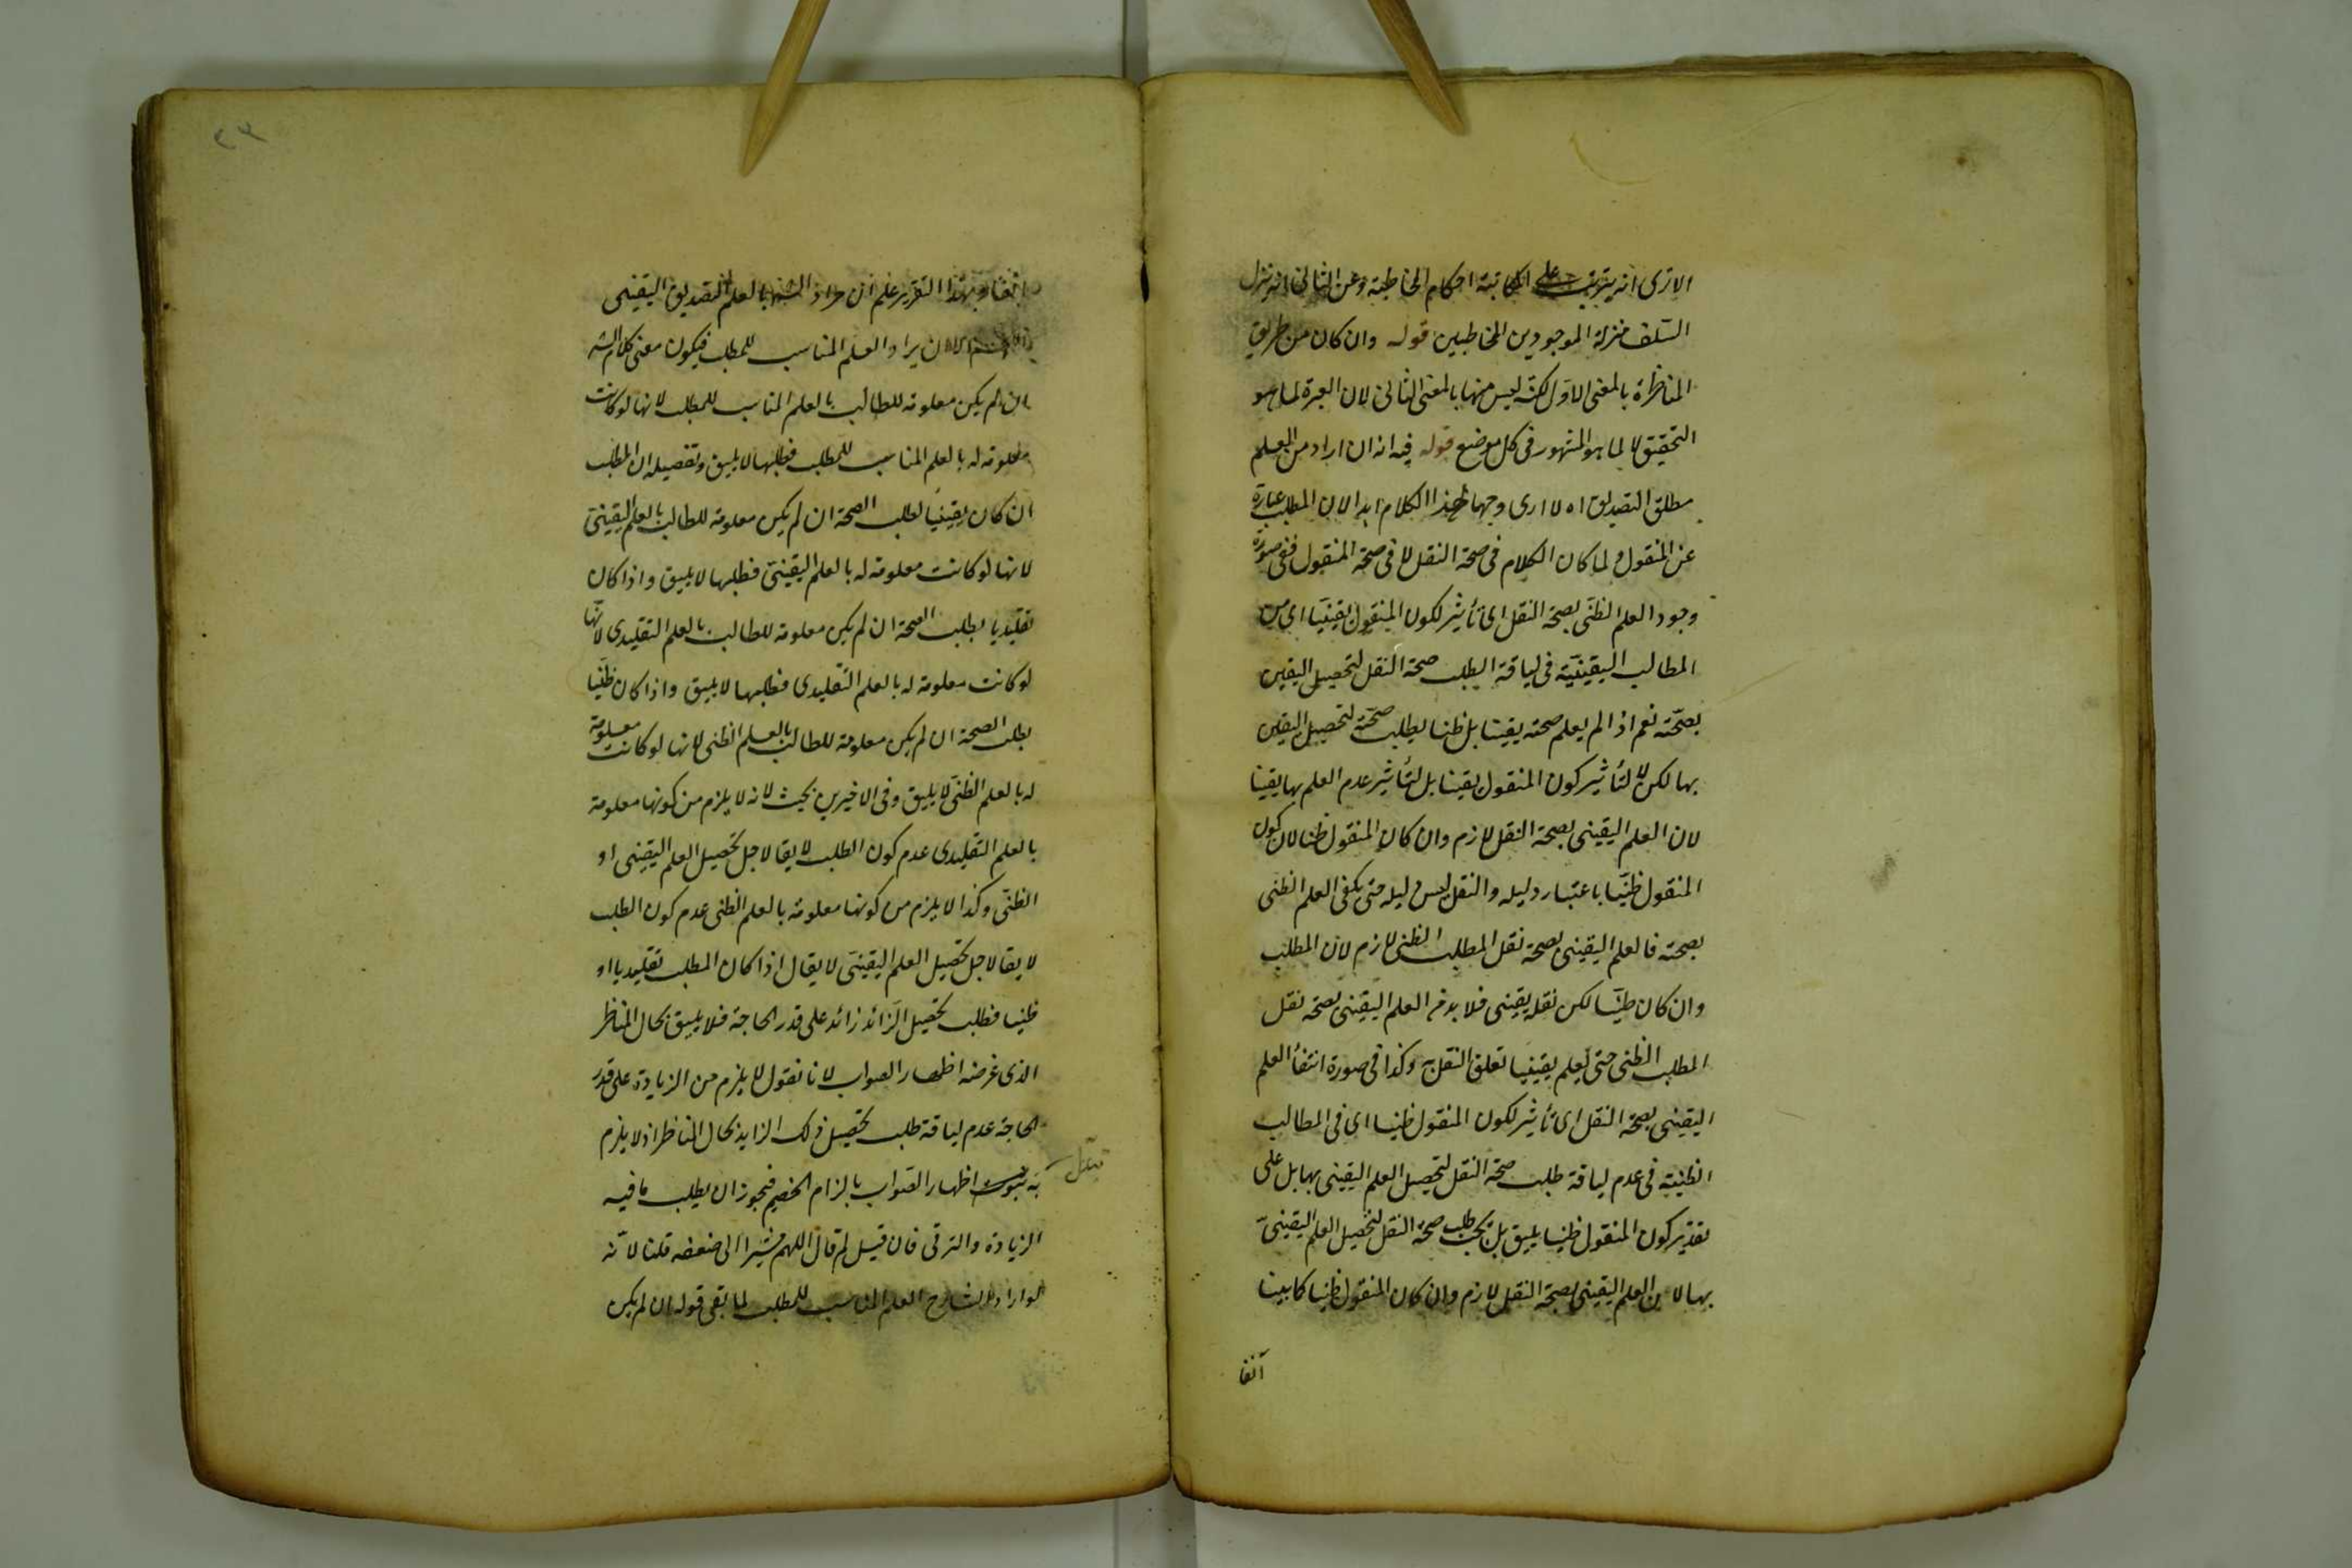 الا ترى انه يترتب على المكاتبة احكام المخاطبة وعن الثانى انه نزل
السلف منزلة الموجودين المخاطبين قوله وان كان من طريق
المناظرة بالمعنى الاول لكنه ليس منها بالمعنى الثانى لان العبرة لما هو
التحقيق لا لما هو المشهور فى كل موضع قوله فيه انه ان اراد من العلم
مطلق التصديق اه لا ارى وجها لهذا الكلام ابدا لان المطلب عبارة
عن المنقول ولما كان الكلام فى صحة النقل لا فى صحة المنقول ففى صورة
وجود العلم الظنى بصحة النقل اى تأثير لكون المنقول يقينيا اى من
المطالب اليقينية فى لياقة الطلب صحة النقل لتحصيل اليقين
بصحته نعم اذا لم يعلم صحته يقينا بل ظنا يطلب صحته لتحصيل اليقين
بها لكن لا لتأثير كون المنقول يقينا بل لتأثير عدم العلم بها يقينا
لان العلم اليقينى بصحة النقل لازم وان كان المنقول ظنا لان كون
المنقول ظنيا باعتبار دليله والنقل ليس دليله حتى يكفى العلم الظنى
بصحته فالعلم اليقينى بصحة نقل المطلب الظنى لازم لان المطلب
وان كان ظنيا لكن نقله يقينى فلا بد من العلم اليقينى بصحة نقل
المطلب الظنى حتى يعلم يقينيا تعلق النقل به وكذا فى صورة انتفأ العلم
اليقينى بصحة النقل اى تأثير لكون المنقول ظنيا اى فى المطالب
الظنية فى عدم لياقة طلب صحة النقل لتحصيل العلم اليقينى بها بل على
تقدير كون المنقول ظنيا يليق بل يجب طلب صحة النقل لتحصيل العلم اليقينى
بها لان العلم اليقينى بصحة النقل لازم وان كان المنقول ظنيا كما بينا
آنفا
٤٣
آنفا وبهذا التقرير علم ان مراد الش بالعلم التصديق اليقينى
الا ان يراد العلم المناسب للمطلب فيكون معنى كلام الش
ان لم يكن معلومة للطالب بالعلم المناسب للمطلب لانها لو كانت
معلومة له بالعلم المناسب للمطلب فطلبها لا يليق وتفصيله ان المطلب
ان كان يقينيا يطلب الصحة ان لم يكن معلومة للطالب بالعلم اليقينى
لانها لو كانت معلومة له بالعلم اليقينى فطلبها لا يليق واذا كان
تقليديا يطلب الصحة ان لم يكن معلومة للطالب بالعلم التقليدى لانها
لو كانت معلومة له بالعلم التقليدى فطلبها لا يليق واذا كان ظنيا
يطلب الصحة ان لم يكن معلومة للطالب بالعلم الظنى لانها لو كانت معلومة
له بالعلم الظنى لا يليق وفى الاخيرين بحيث لانه لا يلزم من كونها معلومة
بالعلم التقليدى عدم كون الطلب لايقا لاجل تحصيل العلم اليقينى او
الظنى وكذا لا يلزم من كونها معلومة بالعلم الظنى عدم كون الطلب
لايقا لاجل تحصيل العلم اليقينى لا يقال اذا كان المطلب تقليديا او
ظنيا فطلب تحصيل الزائد زائد على قدر الحاجة فلا يليق بحال المناظر
الذى غرضه اظهار الصواب لانا نقول لا يلزم من الزيادة على قدر
الحاجة عدم لياقة طلب تحصيل ذلك الزايد بحال المناظر اذ لا يلزم
اظهار الصواب بالزام الخصم فيجوز ان يطلب ما فيه
الزيادة والترقى فان قيل لم قال اللهم مشيرا الى ضعفه قلنا لانه
لو اراد الشارح العلم المناسب للمطلب لما بقى قوله ان لم يكن